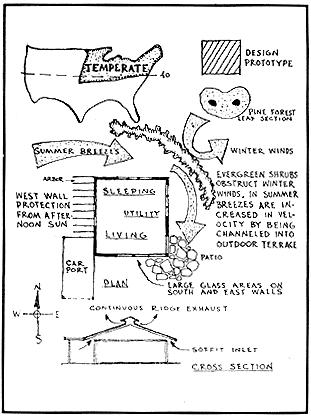 TEMPERATE
40
DESIGN
PROTOTYPE
PINE FOREST
LEAF SECTION
SUMMER BREEZES
WINTER WINDS
ARBOR
WEST WALL
PROTECTION
FROM AFTER-
NOON SUN
SLEEPING
UTILITY
LIVING
EVERGREEN SHRUBS
OBSTRUCT WINTER
WINDS, IN SUMMER
BREEZES ARE IN-
CREASED IN VEL-
OCITY BY BEING
CHANNELED INTO
OUTDOOR TERRACE
CAR
PORT
PATIO
PLAN
LARGE GLASS AREAS ON
SOUTH AND EAST WALLS
N
W
E
S
CONTINUOUS RIDGE EXHAUST
SOFFIT INLET
CROSS SECTION